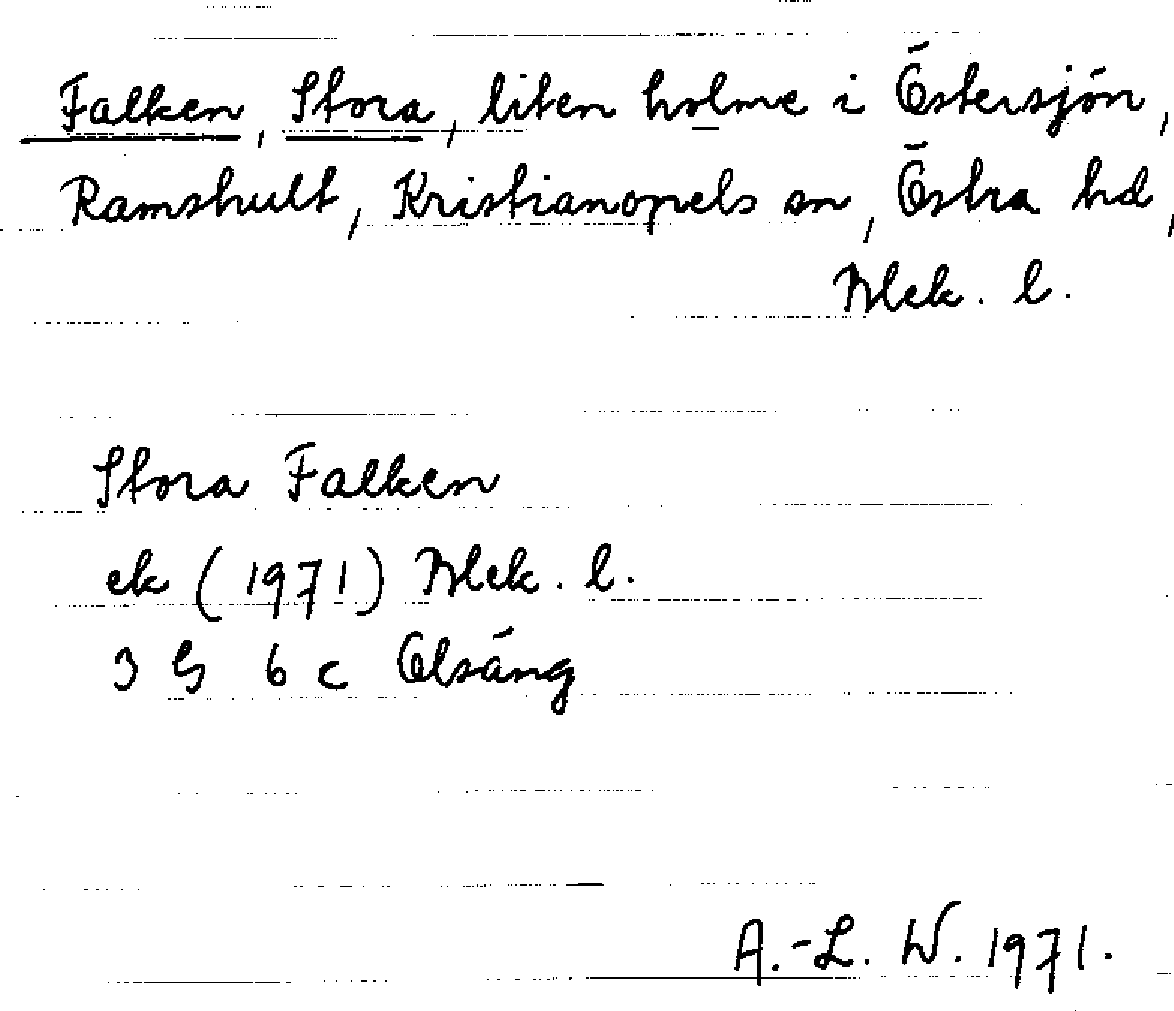 Falken, Stora, liten holme i Östersjön,
Ramshult, Kristianopels sn, Östra hd,
Blek. l.
Stora Falken
ek (1971) Blek. l.
3 G 6 c Olsäng
A.-L. W. 1971.